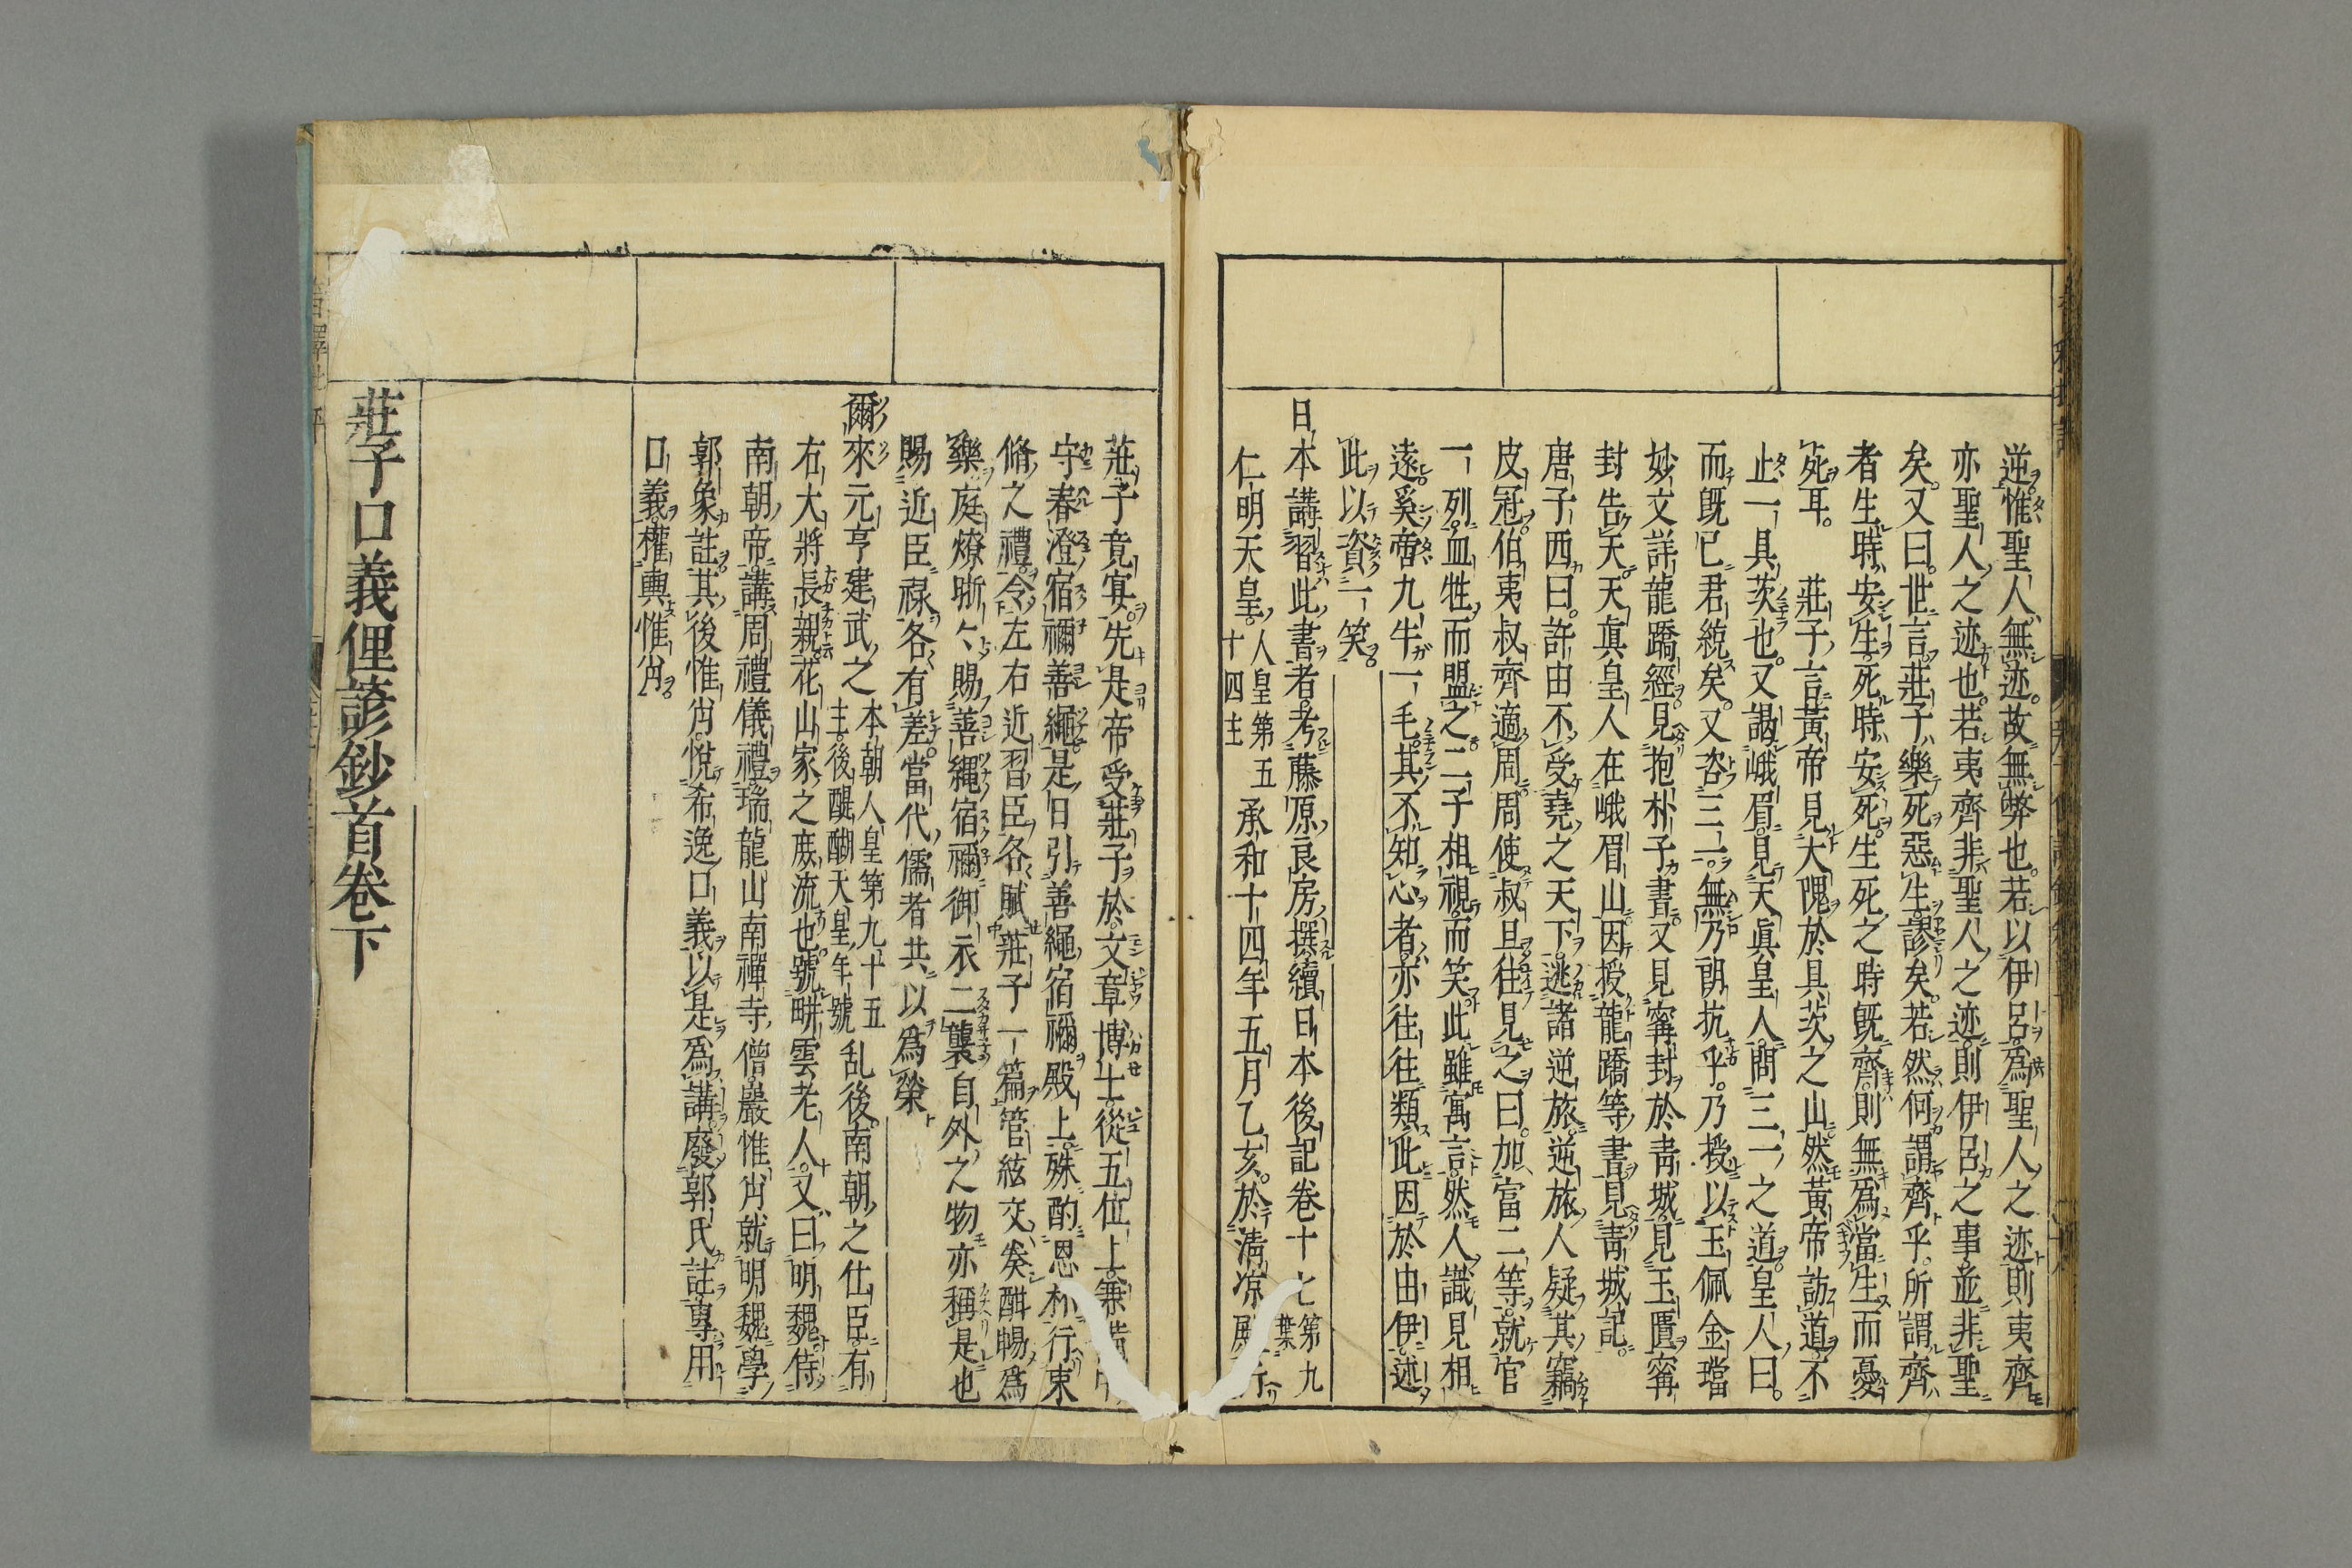 逆惟聖人無迹故無弊也若以伊呂爲聖人之迹則夷齊
亦聖人之迹也若夷齊非聖人之迹則伊呂之事並非聖
矣又曰世言莊子樂死惡生謬矣若然何謂齊乎所謂齊
者生時安生死時安死生死之時旣齊則無爲當生而憂
死耳。莊子言黃帝見大隗於具茨之山然黃帝訪道不
止一具茨也又謁峨眉見天眞皇人問三一之道皇人曰
而旣已君統矣又咨三一無乃朗抗乎乃授以玉佩金璫
妙文詳龍蹻經見抱朴子書又見甯封於靑城見玉匱甯
封告天天眞皇人在峨眉山因授龍蹻等書見靑城記
唐子西曰許由不受堯之天下逃諸逆旅逆旅人疑其竊
皮冠伯夷叔齊適周周使叔旦往見之曰加富二等就官
一列血牲而盟之二子相視而笑此雖寓言然人識見相
遠奚啻九牛一毛其不知心者亦往往類此因於由伊述
此以資一笑
日本講習此書者考藤原良房撰續日本後記卷十七第九葉
仁明天皇人皇第五十四主承和十四年五月乙亥於淸凉殿
莊子竟宴先是帝受莊子於文章博士從五位上兼
守春澄宿禰善繩是日引善繩宿禰殿上殊酌恩杯行束
脩之禮令左右近習臣各賦莊子一篇管絃交奏酣暢爲
樂庭燎晰々賜善繩宿禰御衣二襲自外之物亦稱是也
賜近臣祿各有差當代儒者共以爲榮
爾來元亨建武之本朝人皇第九十五主後醍醐天皇年號乱後南朝之仕臣有
右大將長親花山家之庶流也號畊雲老人又曰明魏侍
南朝帝講周禮儀禮瑞龍山南禪寺僧巖惟肖就明魏學
郭象註其後惟肖悅希逸口義以是爲講廢郭氏註專用
口義權輿惟肖
莊子口義俚諺鈔首卷下